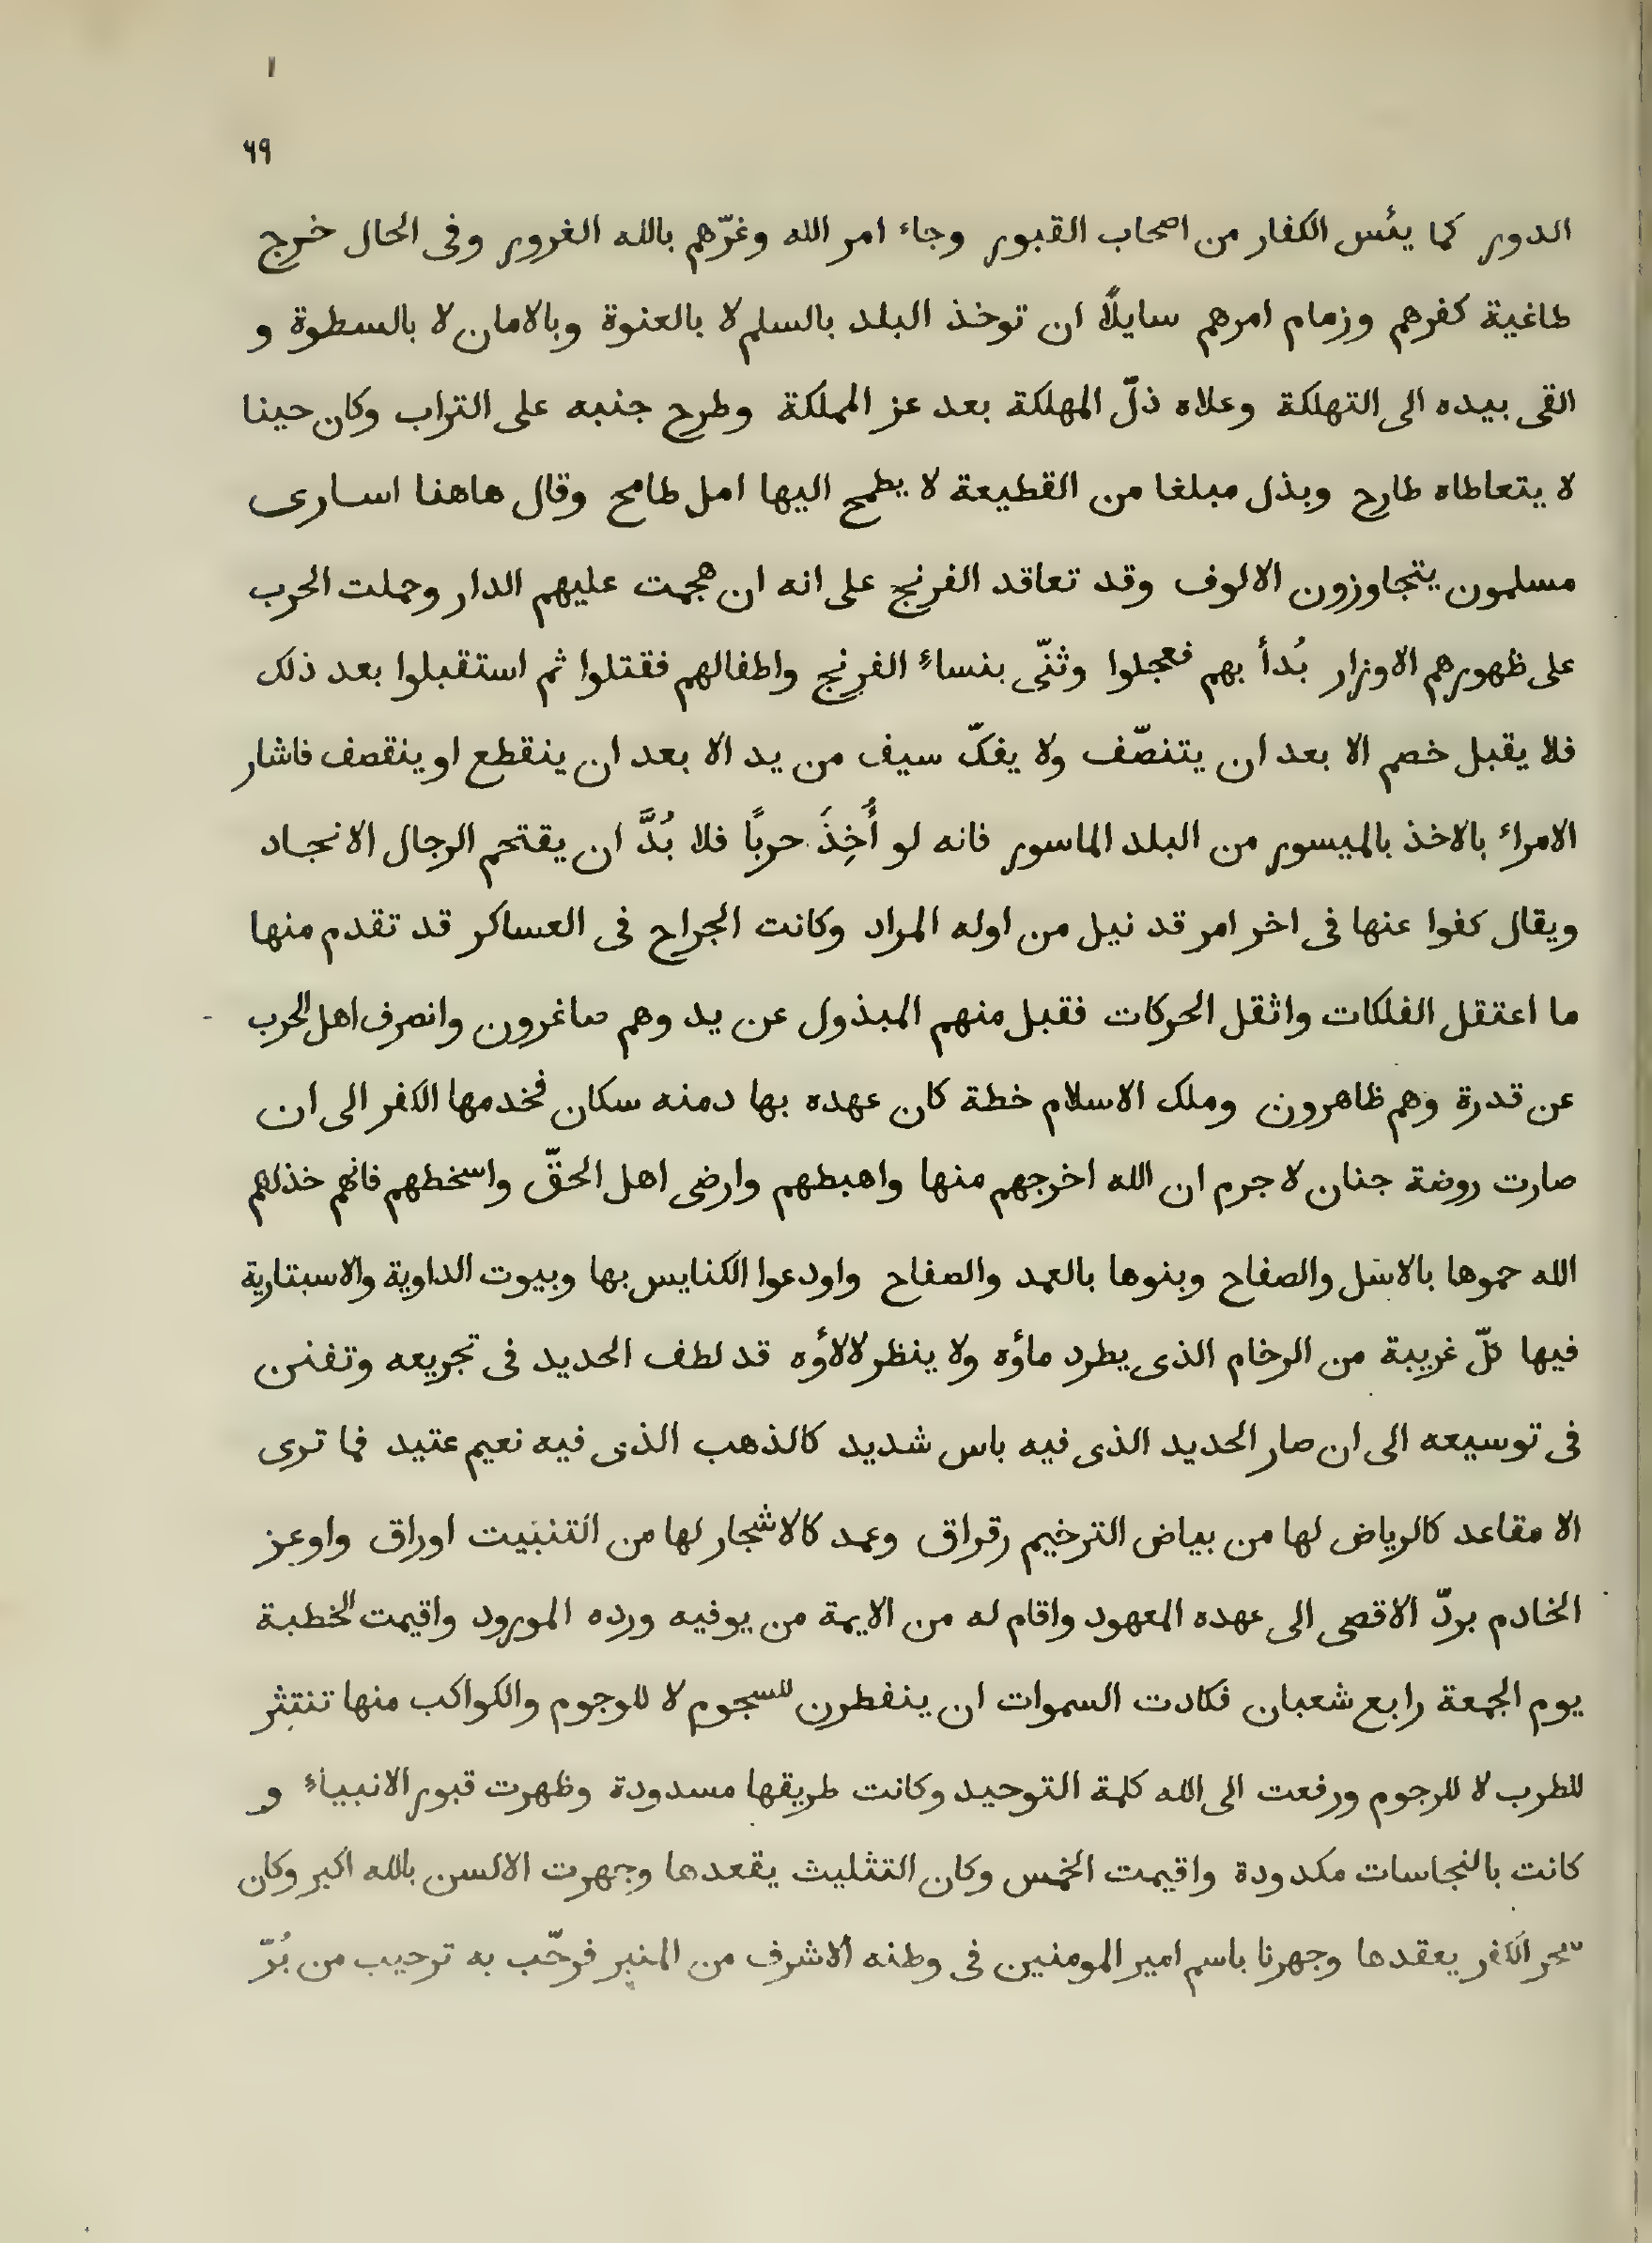 ١
٦٩
الدور كما يئس الكفار من اصحاب القبور وجاء امر الله وغرّهم بالله الغرور وفى الحال خرج
طاغية كفرهم وزمام امرهم سايلًا ان توخذ البلد بالسلم لا بالعنوة وبالامان لا بالسطوة و
القى بيده الى التهلكة وعلاه ذلّ المهلكة بعد عز المملكة وطرح جنبه على التراب وكان حينا
لا يتعاطاه طارح وبذل مبلغا من القطيعة لا يطمح اليها امل طامح وقال هاهنا اسارى
مسلمون يتجاوزون الالوف وقد تعاقد الفرنج على انه ان هجمت عليهم الدار وحملت الحرب
على ظهورهم الاوزار بُدأ بهم فعجلوا وثنّى بنساء الفرنج واطفالهم فقتلوا ثم استقبلوا بعد ذلك
فلا يقبل خصم الا بعد ان يتنصّف ولا يفكّ سيف من يد الا بعد ان ينقطع او ينقصف فاشار
الامراء بالاخذ بالميسور من البلد الماسور فانه لو أُخِذَ حربًا فلا بُدَّ ان يقتحم الرجال الانجاد
ويقال كفوا عنها فى اخر امر قد نيل من اوله المراد وكانت الجراح فى العساكر قد تقدم منها
ما اعتقل الفلكات واثقل الحركات فقبل منهم المبذول عن يد وهم صاغرون وانصرف اهل الحرب
عن قدرة وهم ظاهرون وملك الاسلام خطة كان عهده بها دمنه سكان فخدمها الكفر الى ان
صارت روضة جنان لا جرم ان الله اخرجهم منها واهبطهم وارضى اهل الحقّ واسخطهم فانهم خذلهم
الله حموها بالاسل والصفاح وبنوها بالعمد والصفاح واودعوا الكنايس بها وبيوت الداوية والاسبتارية
فيها كلّ غريبة من الرخام الذى يطرد مأوه ولا ينظر لالأوه قد لطف الحديد فى تجريعه وتفنن
فى توسيعه الى ان صار الحديد الذى فيه باس شديد كالذهب الذى فيه نعيم عتيد فما ترى
الا مقاعد كالرياض لها من بياض الترخيم رقراق وعمد كالاشجار لها من التنبيت اوراق واوعز
الخادم بردّ الاقصى الى عهده المعهود واقام له من الايمة من يوفيه ورده المورود واقيمت الخطبة
يوم الجمعة رابع شعبان فكادت السموات ان ينفطرن للسجوم لا للوجوم والكواكب منها تنتثر
للطرب لا للرجوم ورفعت الى الله كلمة التوحيد وكانت طريقها مسدودة وظهرت قبور الانبياء و
كانت بالنجاسات مكدودة واقيمت الخمس وكان التثليث يقعدها وجهرت الالسن بالله اكبر وكان
سحر الكفر يعقدها وجهرنا باسم امير المومنين فى وطنه الاشرف من المنبر فرحّب به ترحيب من بُرّ